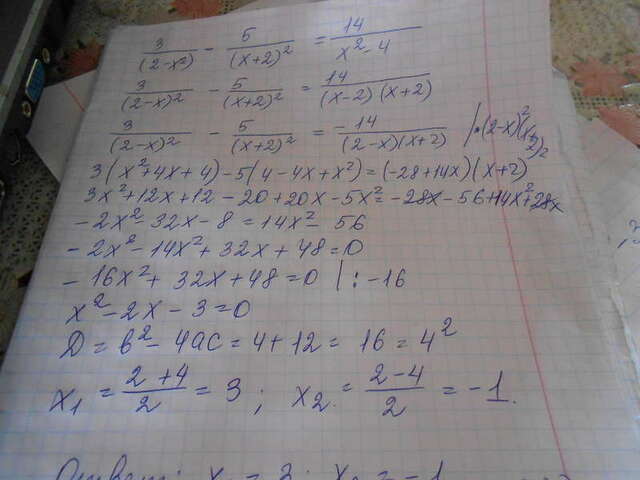 3/(2-x²) - 5/(x+2)² = 14/(x²-4)
3/(2-x)² - 5/(x+2)² = 14/((x-2)(x+2))
3/(2-x)² - 5/(x+2)² = -14/((2-x)(x+2)) | •(2-x)²(x+2)²
3(x²+4x+4)-5(4-4x+x²)=(-28+14x)(x+2)
3x²+12x+12-20+20x-5x²=-28x-56+14x²+28x
-2x²-32x-8=14x²-56
-2x²-14x²+32x+48=0
-16x²+32x+48=0 | :-16
x²-2x-3=0
D=b²-4ac=4+12=16=4²
x₁=(2+4)/2=3; x₂=(2-4)/2=-1.
Ответ: x₁=3; x₂=-1